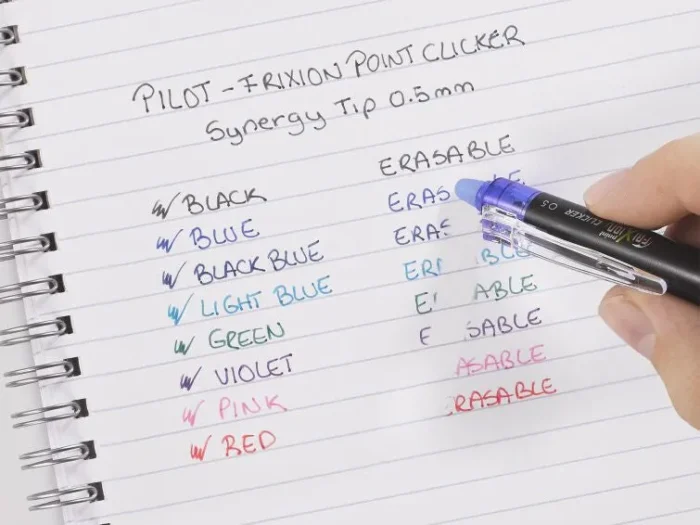 PILOT - FRIXION POINT CLICKER
Synergy Tip 0.5mm
ERASABLE
BLACK ERAS LE
BLUE ERAS
BLACK BLUE ER BLE
LIGHT BLUE E ABLE
GREEN E SABLE
VIOLET ASABLE
PINK RASABLE
RED
FRIXION point CLICKER 05